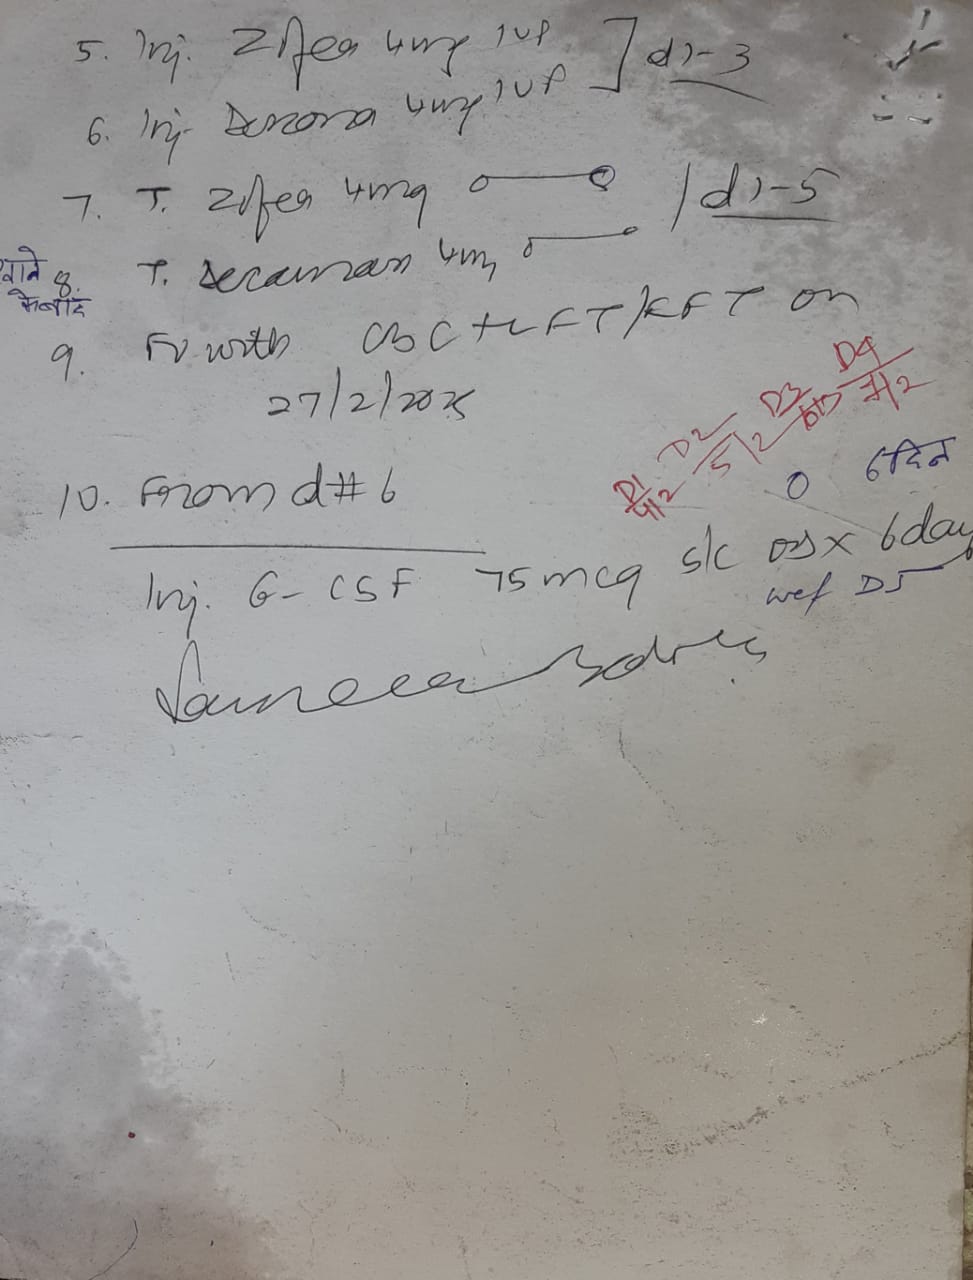 5. Inj. Zifer 4mg IVP ] d1-3
6. Inj. Dexona 4mg IVP
7. T. Zifer 4mg o—o / d1-5
खाने के बाद
8. T. 4mg o—o
9. FU with CBC + LFT/KFT on
27/2/2025
D1 4/2 D2 5/2 D3 6/2 D4 7/2
10. From d#6
0 6 दिन
Inj. G-CSF 75mcg s/c OD x 6 day
wef D5